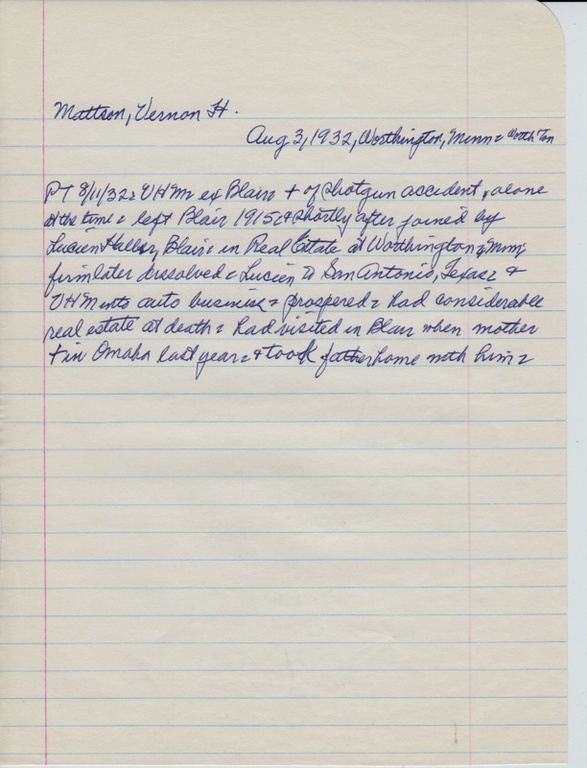 Mattson, Vernon H.
Aug 3, 1932, Worthington, Minn
PT 8/11/32: VHM ex Blair + of shotgun accident, alone
at the time: left Blair 1915 & shortly after joined by
Lucien Haller, Blair: in Real Estate at Worthington, Minn;
firm later dissolved: Lucien to San Antonio, Texas: &
VHM into auto business: prospered: had considerable
real estate at death: had visited in Blair when mother
+ in Omaha last year: & took father home with him: